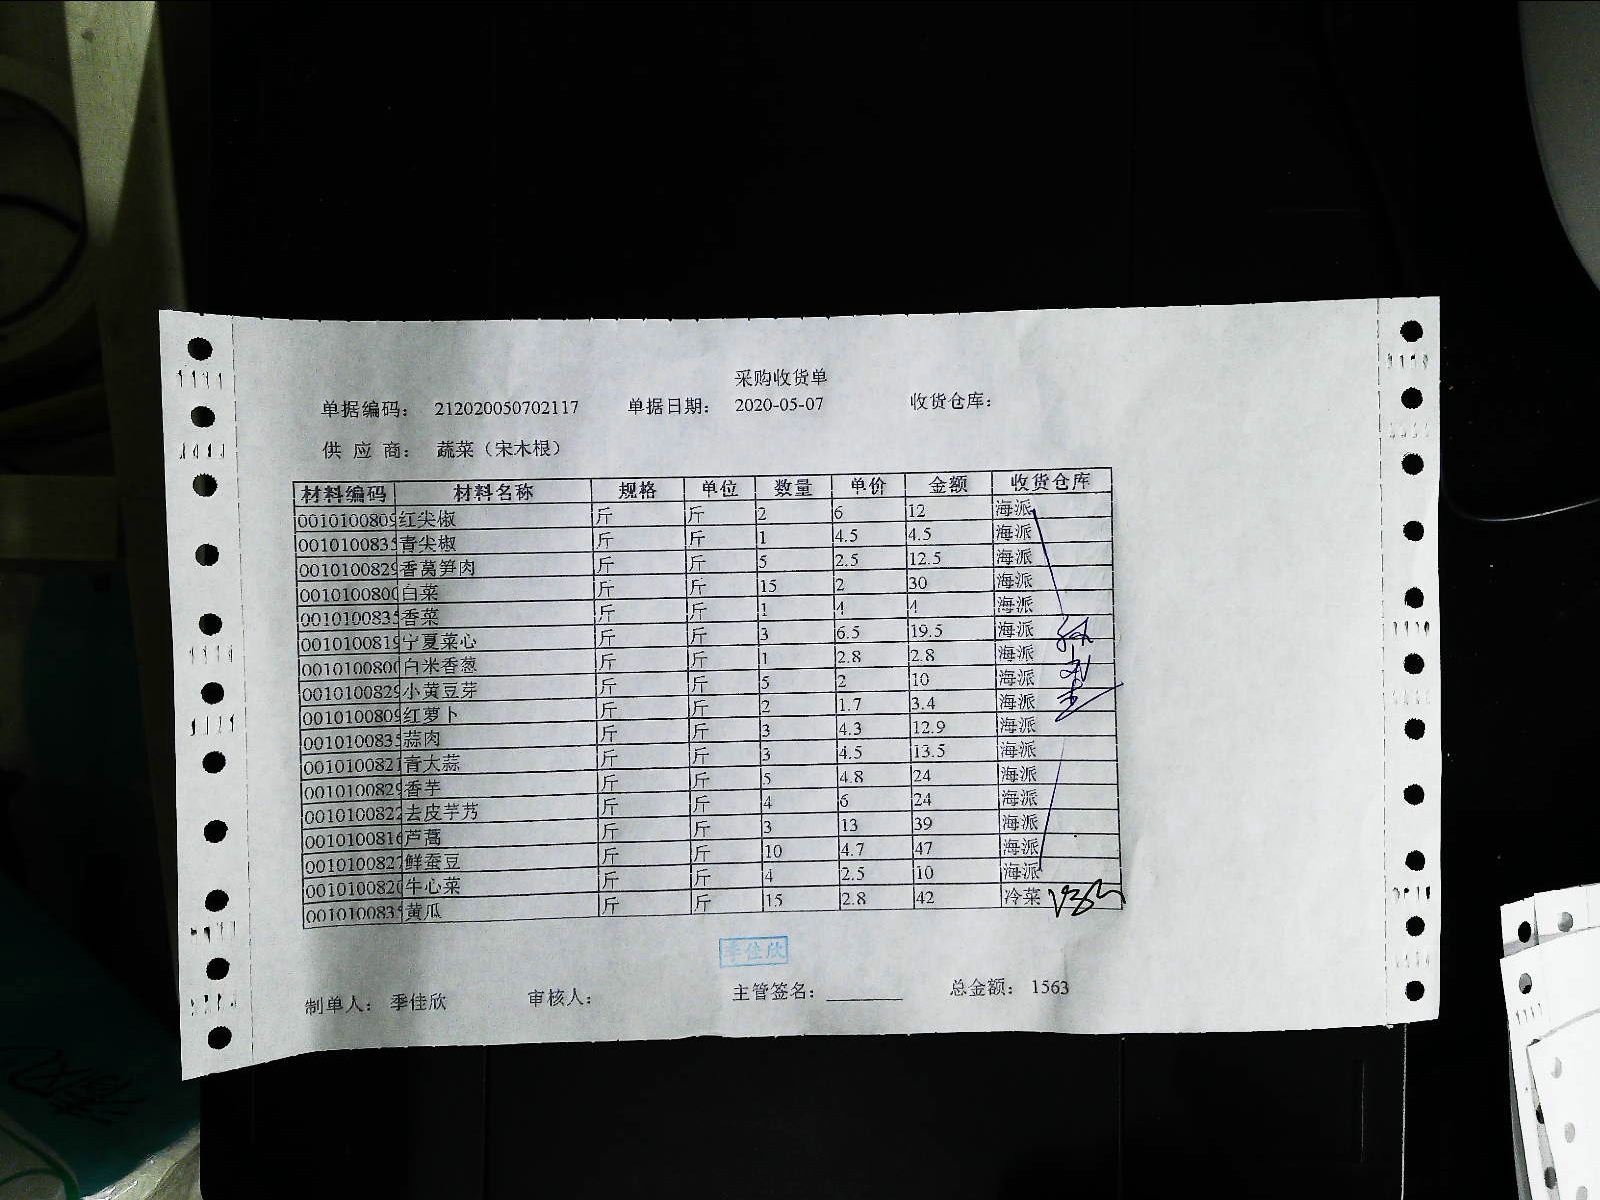 采购收货单
单据编码： 212020050702117 单据日期： 2020-05-07 收货仓库：
供 应 商： 蔬菜（宋木根）
材料编码 材料名称 规格 单位 数量 单价 金额 收货仓库
0010100809 红尖椒 斤 斤 2 6 12 海派
0010100835 青尖椒 斤 斤 1 4.5 4.5 海派
0010100829 香莴笋肉 斤 斤 5 2.5 12.5 海派
0010100800 白菜 斤 斤 15 2 30 海派
0010100835 香菜 斤 斤 1 4 4 海派
0010100819 宁夏菜心 斤 斤 3 6.5 19.5 海派
0010100800 白米香葱 斤 斤 1 2.8 2.8 海派
0010100829 小黄豆芽 斤 斤 5 2 10 海派
0010100809 红萝卜 斤 斤 2 1.7 3.4 海派
0010100835 蒜肉 斤 斤 3 4.3 12.9 海派
0010100821 青大蒜 斤 斤 3 4.5 13.5 海派
0010100829 香芋 斤 斤 5 4.8 24 海派
0010100822 去皮芋艿 斤 斤 4 6 24 海派
0010100816 芦蒿 斤 斤 3 13 39 海派
0010100827 鲜蚕豆 斤 斤 10 4.7 47 海派
0010100820 牛心菜 斤 斤 4 2.5 10 海派
0010100835 黄瓜 斤 斤 15 2.8 42 冷菜
季佳欣
制单人： 季佳欣 审核人： 主管签名： 总金额： 1563